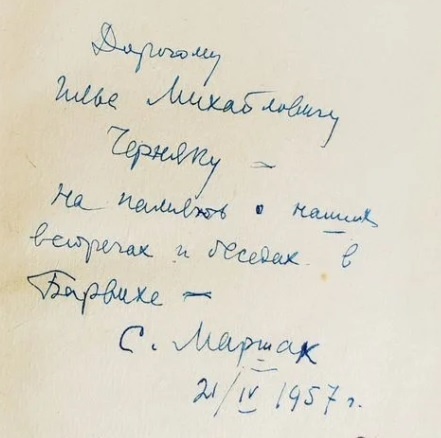 Дорогому
Илье Михайловичу
Черняку –
на память о наших
встречах и беседах в
Барвихе –
С. Маршак
21/IV 1957 г.